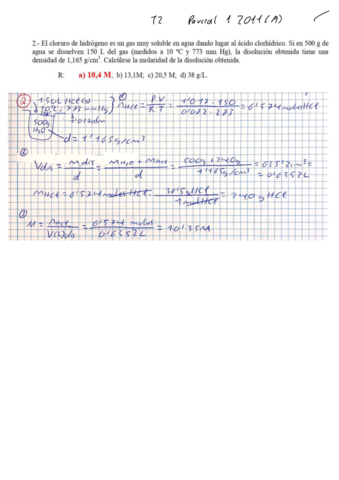 T2 Parcial 1 2011(A)
2.- El cloruro de hidrógeno es un gas muy soluble en agua dando lugar al ácido clorhídrico. Si en 500 g de
agua se disuelven 150 L del gas (medidos a 10 ºC y 773 mm Hg), la disolución obtenida tiene una
densidad de 1,165 g/cm³. Calcúlese la molaridad de la disolución obtenida.
R: a) 10,4 M; b) 13,1M; c) 20,5 M; d) 38 g/L.
② 150L HCl(g) ① nHCl = PV/RT = 1'017·150/0'082·283 = 6'574 moles HCl
10ºC, 773 mmHg
1'017 atm
500g
H2O
d = 1'165 g/cm³
②
Vdis = mdis/d = mH2O + mHCl/d = 500g + 240g/1'165 g/cm³ = 635'2 cm³ =
= 0'6352L
mHCl = 6'574 moles HCl · 36'5g HCl/1 mol HCl = 240 g HCl
③
M = nHCl/V(L)dis = 6'574 moles/0'6352L = 10'35M